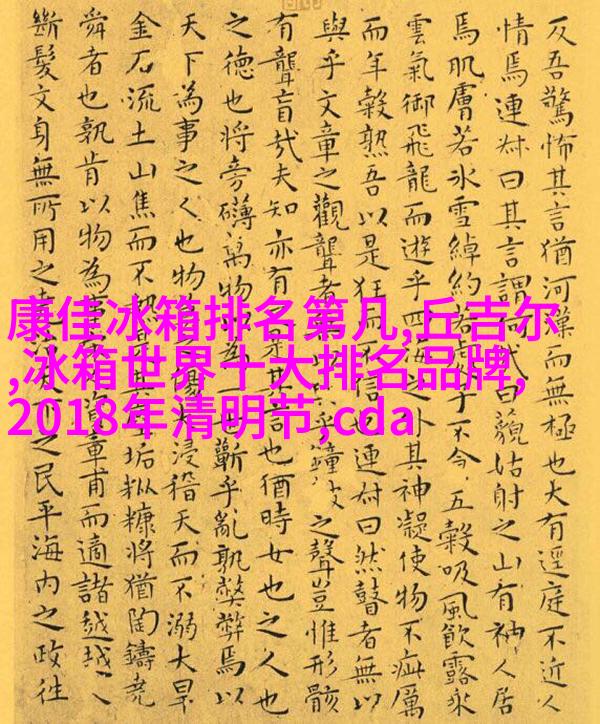 反吾驚怖其言猶河漢而無極也大有逕庭不近人
情焉連叔曰其言謂何哉曰藐姑射之山有神人居
焉肌膚若冰雪綽約若處子不今五穀吸風飲露乘
雲氣御飛龍而遊乎四海之外其神凝使物不疵厲
而年穀熟吾以是狂而不信也連叔曰然瞽者無以
與乎文章之觀聾者無以 乎鐘 之聲豈惟形骸
有聾盲哉夫知亦有 是其言也猶時女也之人也
之德也將旁礴萬物 為一世蘄乎亂孰弊弊焉以
天下為事之人也物莫之傷大浸稽天而不溺大旱
金石流土山焦而不熱是 垢粃糠將猶陶鑄堯
舜者也孰肯以物為事 資章甫而適諸越越人
斷髮文身無所用之堯 天下之民平海內之政往
康佳冰箱排名第几,丘吉尔
,冰箱世界十大排名品牌,
2018年清明节,cda